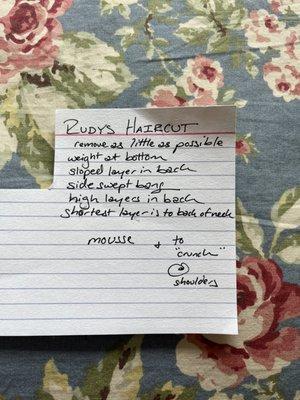 RUDY'S HAIRCUT
remove as little as possible
weight at bottom
sloped layer in back
side swept bang
high layers in back
shortest layer is to back of neck
mousse & to
"crunch"
shoulders